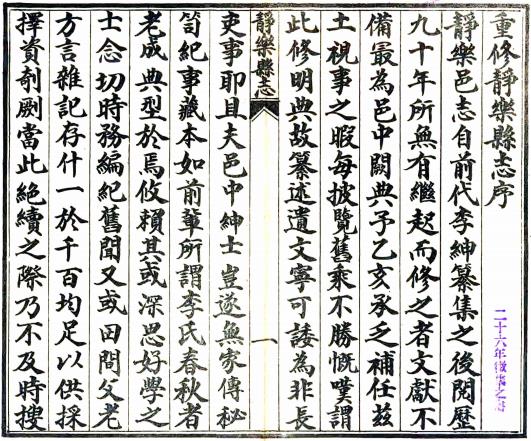 重修靜樂縣志序
靜樂邑志自前代李紳纂集之後閱歷
九十年所無有繼起而修之者文獻不
備最為邑中闕典予乙亥承乏補任茲
土視事之暇每披覽舊乘不勝慨嘆謂
此修明典故纂述遺文寧可諉為非長
靜樂縣志
一
吏事耶且夫邑中紳士豈遂無家傳秘
笥紀事藏本如前輩所謂李氏春秋者
老成典型於焉攸賴其或深思好學之
士念切時務編紀舊聞又或田間父老
方言雜記存什一於千百均足以供採
擇資剞劂當此絕續之際乃不及時搜
二十六年
之